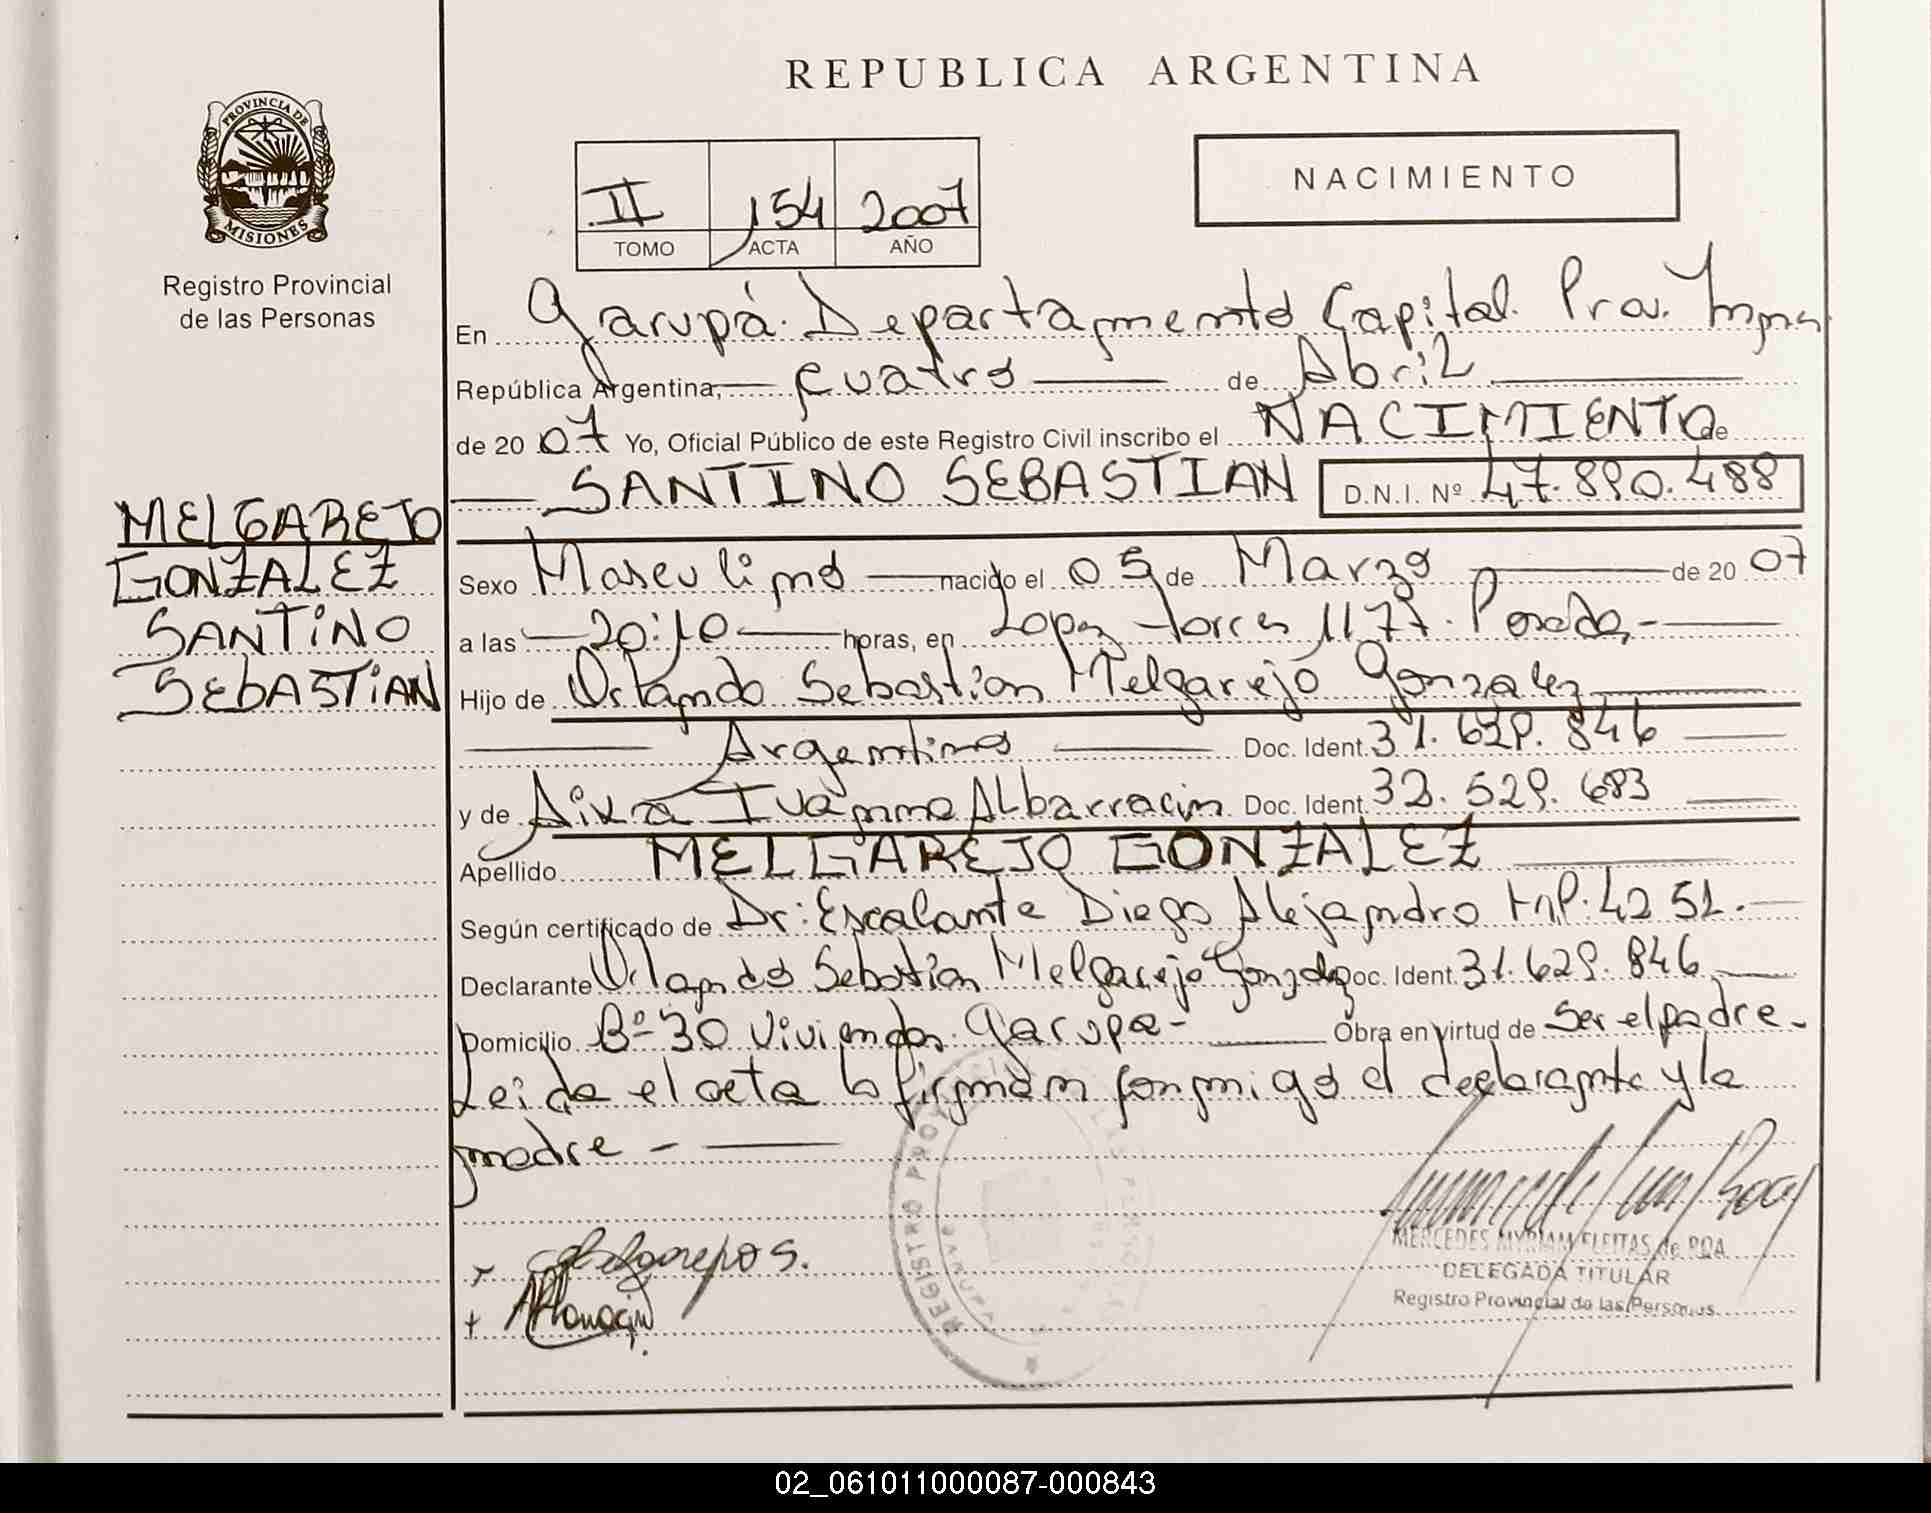 REPUBLICA ARGENTINA
PROVINCIA DE
MISIONES
Registro Provincial
de las Personas
NACIMIENTO
II 154 2007
TOMO ACTA AÑO
En Garupá. Departamento Capital. Prov. Mnes
República Argentina, cuatro de Abril
de 2007 Yo, Oficial Público de este Registro Civil inscribo el NACIMIENTO de
SANTINO SEBASTIAN D.N.I. Nº 47.890.488
MELGAREJO
GONZALEZ
SANTINO
SEBASTIAN
Sexo Masculino nacido el 05 de Marzo de 2007
a las 20:10 horas, en Lopez Torres 1177. Posadas.-
Hijo de Orlando Sebastian Melgarejo Gonzalez
Argentino Doc. Ident. 31.629.846
y de Ivanna Albarracin Doc. Ident. 529.683
Apellido MELGAREJO GONZALEZ
Según certificado de Dr: Escalante Diego Alejandro M.P: 4251.-
Declarante Orlando Sebastian Melgarejo Gonzalez Doc. Ident. 31.629.846
Domicilio Bº 30 Viviendas. Garupa- Obra en virtud de ser el padre-
Leida el acta la firman conmigo el declarante y la
madre -
REGISTRO
MERCEDES MYRIAM FLEITAS de ROA
DELEGADA TITULAR
Registro Provincial de las Personas
02_061011000087-000843